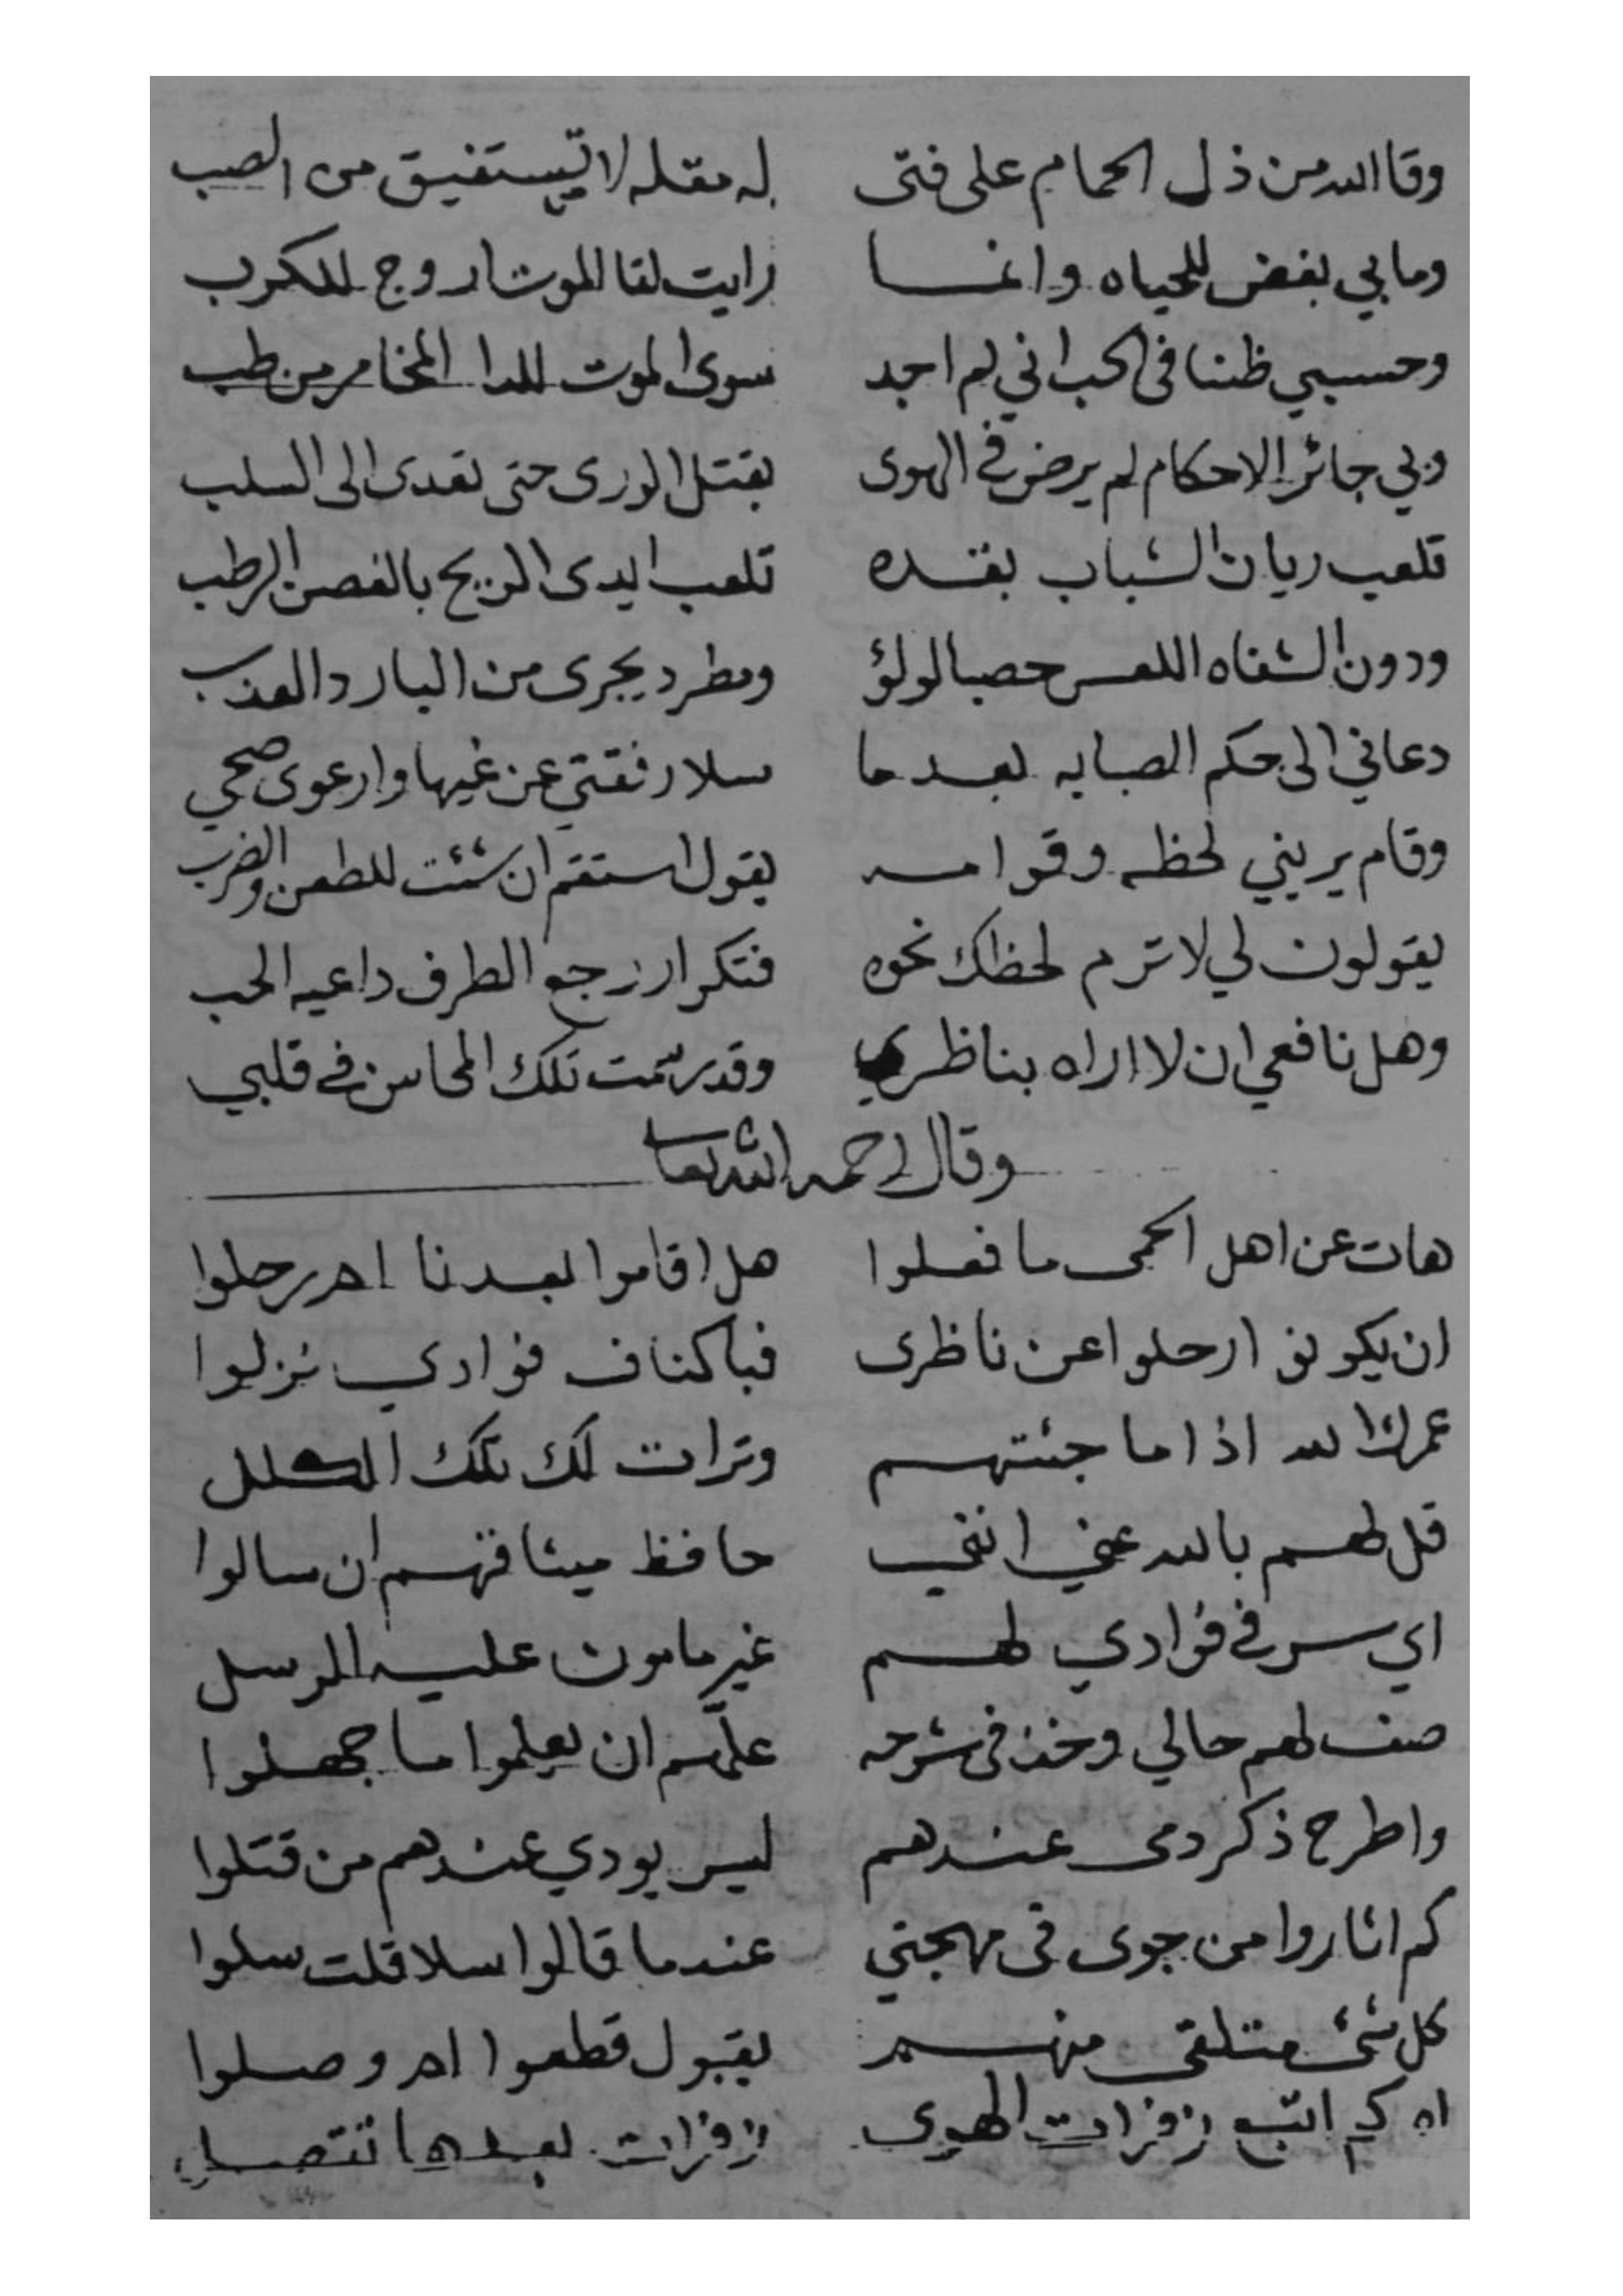 وقا الله من ذل الحمام على فتى له مقله لا تستفيق من الصب
وما بي بغض للحياه وانما رايت لقا الموت اروح للكرب
وحسبي ظننا في الحب اني لم اجد سوى الموت للدا المخامر من طب
وبي جائر الاحكام لم يرض في الهوى بقتل الورى حتى تعدى الى السلب
تلعب ريان الشباب بقده تلعب ايدى الريح بالغصن الرطب
ودون الشفاه اللعس حصبا لولؤ ومطرد يجرى من البارد العذب
دعاني الى حكم الصبابه بعد ما سلا رفقتي عن غيها وارعوى صحبي
وقام يريني لحظه وقوامه يقول استقم ان شئت للطعن والضرب
يقولون لي لا ترم لحظك نحوه فتكرار رجع الطرف داعيه الحب
وهل نافعي ان لا اراه بناظري وقد رسمت تلك المحاسن في قلبي
وقال رحمه الله تعا
هات عن اهل الحمى ما فعلوا هل اقاموا بعدنا ام رحلوا
ان يكونو ارحلوا عن ناظرى فباكناف فوادي نزلوا
عمرك الله اذا ما جئتهم وترات لك تلك الكلل
قل لهم بالله عني انني حافظ ميثاقهم ان سالوا
اي سر في فؤادي لهم غير مامون عليه المرسل
صف لهم حالي وخذ في شرحه علهم ان يعلموا ما جهلوا
واطرح ذكر دمى عندهم ليس يودي عندهم من قتلوا
كم اثاروا من جوى في مهجتي عندما قالوا سلا قلت سلوا
كل شئ متلقى منهم بقبول قطعوا ام وصلوا
اه كم اتبع زفرات الهوى زفرات بعدها تتصل